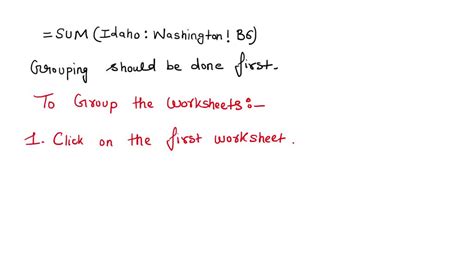 = SUM (Idaho : Washington ! B6)
Grouping should be done first.
To Group the worksheets:–
1. Click on the first worksheet.